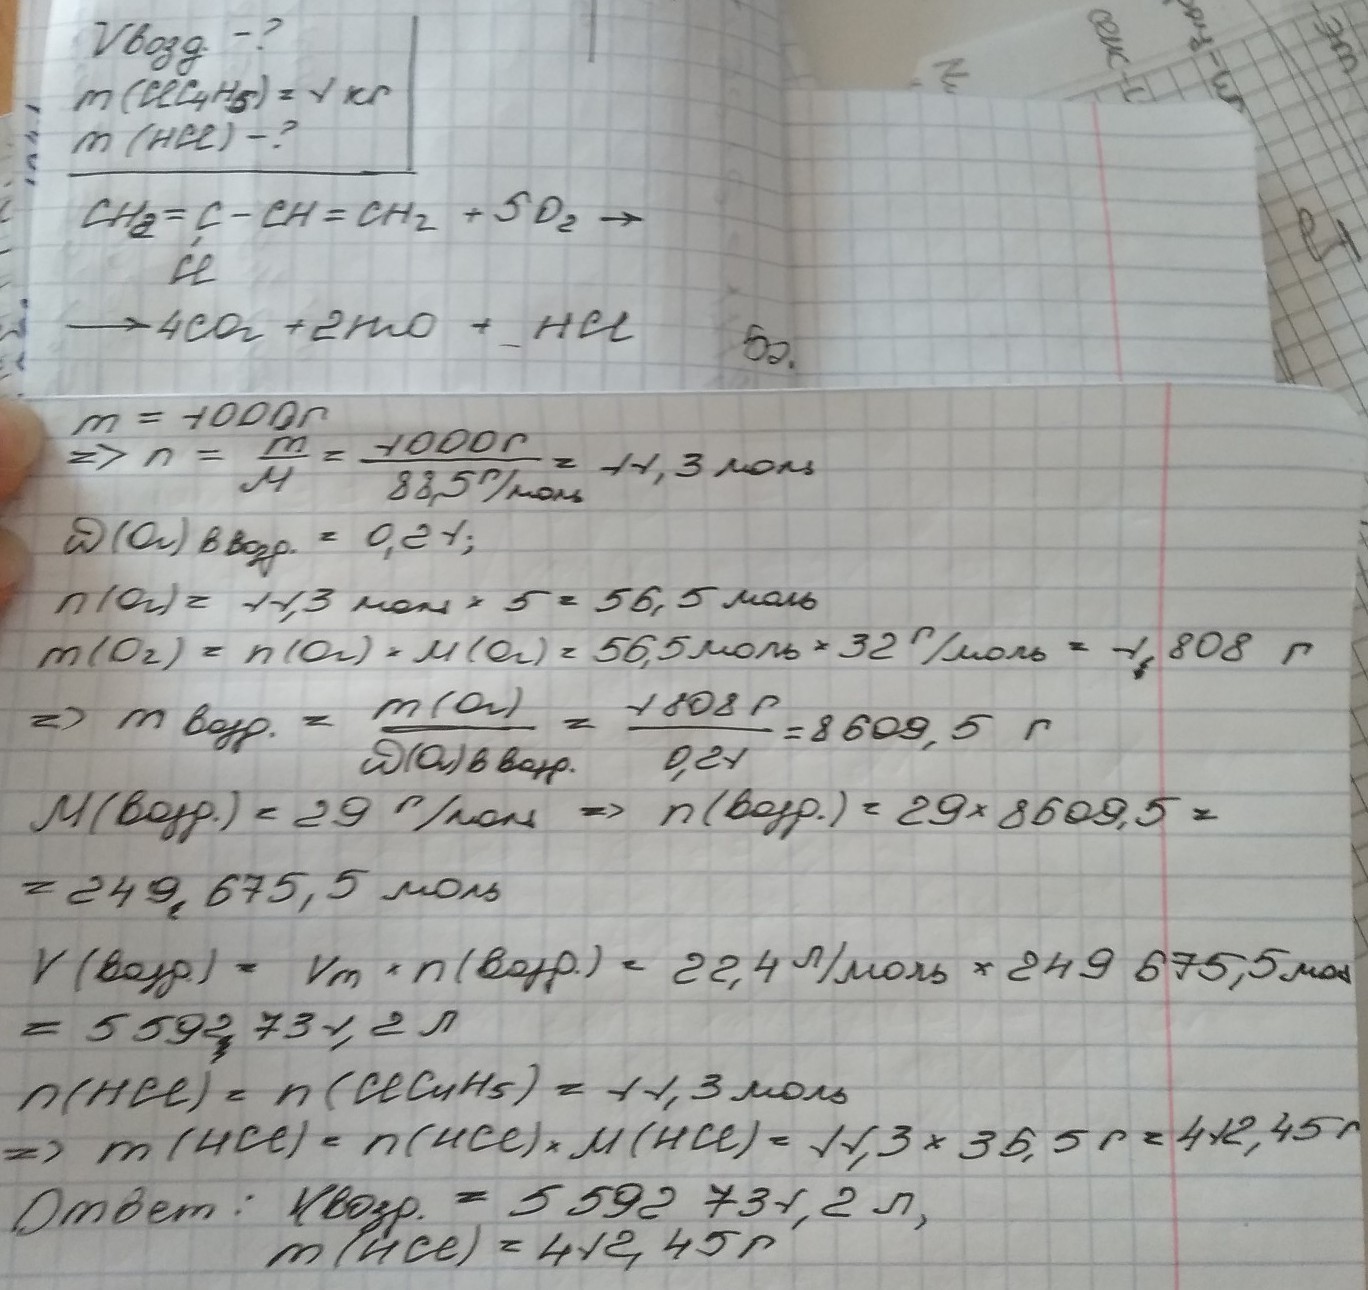 Vвозд. - ?
m(ClC₄H₅) = 1 кг
m(HCl) - ?
CH₂ = C - CH = CH₂ + 5O₂ →
Cl
→ 4CO₂ + 2H₂O + HCl
m = 1000г
=> n = m/M = 1000г/88,5г/моль = 11,3 моль
ω(O₂) в возд. = 0,21;
n(O₂) = 11,3 моль × 5 = 56,5 моль
m(O₂) = n(O₂) × M(O₂) = 56,5 моль × 32 г/моль = 1 808 г
=> m возд. = m(O₂)/ω(O₂) в возд. = 1808 г/0,21 = 8609,5 г
M(возд.) = 29 г/моль => n(возд.) = 29 × 8609,5 =
= 249 675,5 моль
V(возд.) = Vm × n(возд.) = 22,4 л/моль × 249 675,5 мол
= 5 592 731,2 л
n(HCl) = n(ClC₄H₅) = 11,3 моль
=> m(HCl) = n(HCl) × M(HCl) = 11,3 × 36,5 г = 412,45 г
Ответ: Vвозд. = 5 592 731,2 л,
m(HCl) = 412,45 г